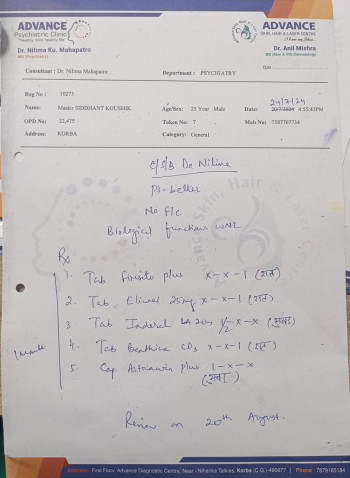 ADVANCE
Psychiatric Clinic
"healthy mind healthy life"
Dr. Nilima Ku. Mahapatro
MD (Psychiatry)
ADVANCE
SKIN, HAIR & LASER CENTRE
Dr. Anil Mishra
Consultant : Dr. Nilima Mahapatro
Department : PSYCHIATRY
Date
Reg No : 10273
Name: Master SIDDHANT KOUSHIK
Age/Sex: 25 Year Male
24/7/24
Date: 20/7/2024 4:55:43PM
OPD No: 22,475
Token No: 7
Mob No: 7587767734
Address: KORBA
Category: General
C/S/B Dr Nilima
Pt- better
No F/c
Biological functions WNL
Rx
1. Tab plus x-x-1 (रात)
2. Tab. 25mg x-x-1 (रात)
3 Tab Inderal LA 20mg 1/2-x-x (सुबह)
4. Tab CD3 x-x-1 (रात)
5. Cap plus 1-x-x
(सुबह)
Review on 20th August.
Address: First Floor, Advance Diagnostic Centre, Near - Niharika Talkies, Korba (C.G.)-495677 | Phone : 7879165184